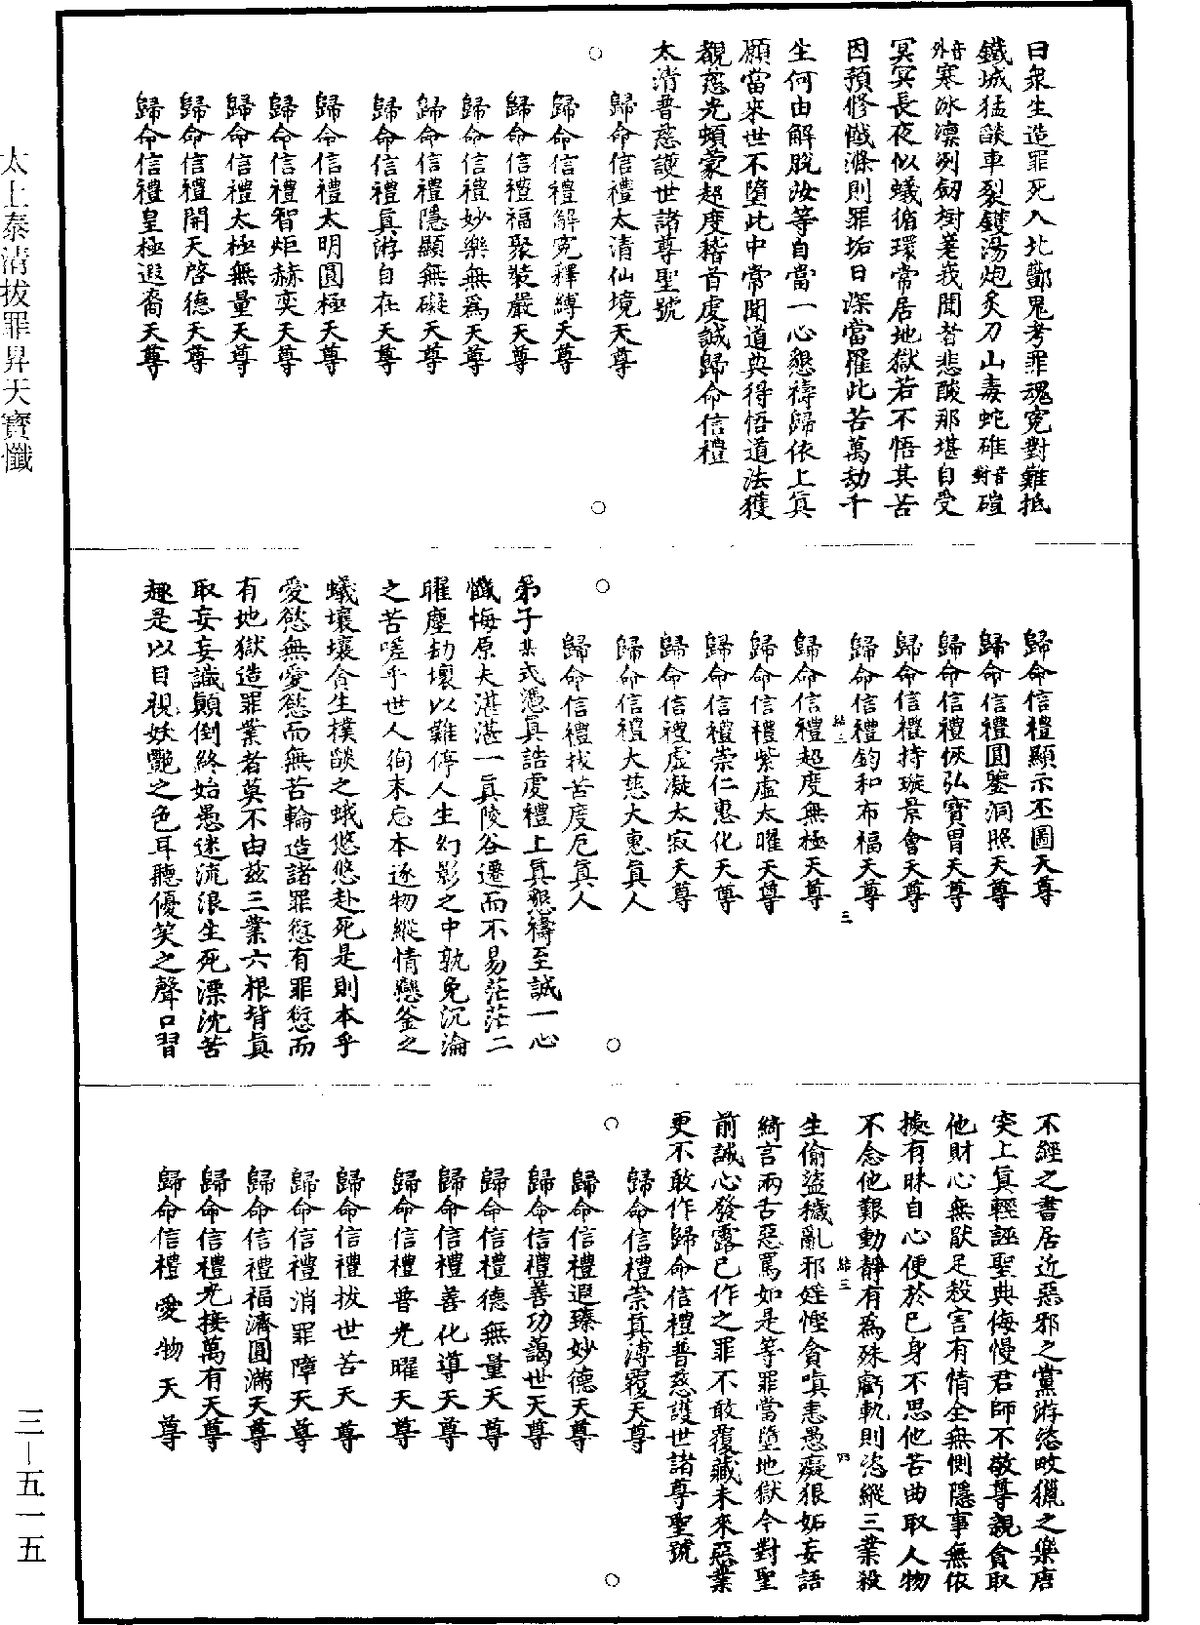 太上泰清拔罪昇天寶懺
三—五一五
曰衆生造罪死入北酆鬼考罪魂寃對難抵
鐵城猛燄車裂鑊湯炮炙刀山毒蛇碓音對磑
音外寒冰凛冽劒樹荖我聞昔悲酸那堪自受
冥冥長夜似蟻循環常居地獄若不悟其苦
因預修懺滌則罪垢日深當罹此苦萬劫千
生何由解脫汝等自當一心懇禱歸依上眞
願當來世不墮此中常聞道典得悟道法獲
覩慈光頓蒙超度稽首虔誠歸命信禮
太清普慈護世諸尊聖號
歸命信禮太清仙境天尊
歸命信禮解寃釋縛天尊
歸命信禮福聚裝嚴天尊
歸命信禮妙樂無爲天尊
歸命信禮隱顯無礙天尊
歸命信禮眞游自在天尊
歸命信禮太明圓極天尊
歸命信禮智炬赫奕天尊
歸命信禮太極無量天尊
歸命信禮開天啓德天尊
歸命信禮皇極遐裔天尊
歸命信禮顯示丕圖天尊
歸命信禮圓鑒洞照天尊
歸命信禮恢弘寶胄天尊
歸命信禮持璇景會天尊
歸命信禮鈞和布福天尊
結三
三
歸命信禮超度無極天尊
歸命信禮紫虛太曜天尊
歸命信禮崇仁惠化天尊
歸命信禮虛凝太寂天尊
歸命信禮大慈大惠眞人
歸命信禮拔苦度厄眞人
弟子某式憑眞誥虔禮上眞懇禱至誠一心
懺悔原夫湛湛一眞陵谷遷而不易茫茫二
曜塵劫壞以難停人生幻影之中孰免沉淪
之苦嗟乎世人徇末忘本逐物縱情戀釜之
蟻壤壤含生樸燄之蛾悠悠赴死是則本乎
愛慾無愛慾而無苦輪造諸罪愆有罪愆而
有地獄造罪業者莫不由茲三業六根背眞
取妄妄識顛倒終始愚迷流浪生死漂沈苦
趣是以目視妖艷之色耳聽優笑之聲口習
不經之書居近惡邪之黨游恣畋獵之樂唐
突上眞輕誣聖典侮慢君師不敬尊親貪取
他財心無厭足殺害有情全無惻隱事無依
據有昧自心便於己身不思他苦曲取人物
不念他艱動靜有爲殊虧軌則恣縱三業殺
結三
四
生偷盜穢亂邪婬慳貪嗔恚愚癡狠妬妄語
綺言兩舌惡罵如是等罪當墮地獄今對聖
前誠心發露已作之罪不敢覆藏未來惡業
更不敢作歸命信禮普慈護世諸尊聖號
歸命信禮崇眞溥覆天尊
歸命信禮遐臻妙德天尊
歸命信禮善功藹世天尊
歸命信禮德無量天尊
歸命信禮善化導天尊
歸命信禮普光曜天尊
歸命信禮拔世苦天尊
歸命信禮消罪障天尊
歸命信禮福濟圓滿天尊
歸命信禮光接萬有天尊
歸命信禮愛物天尊